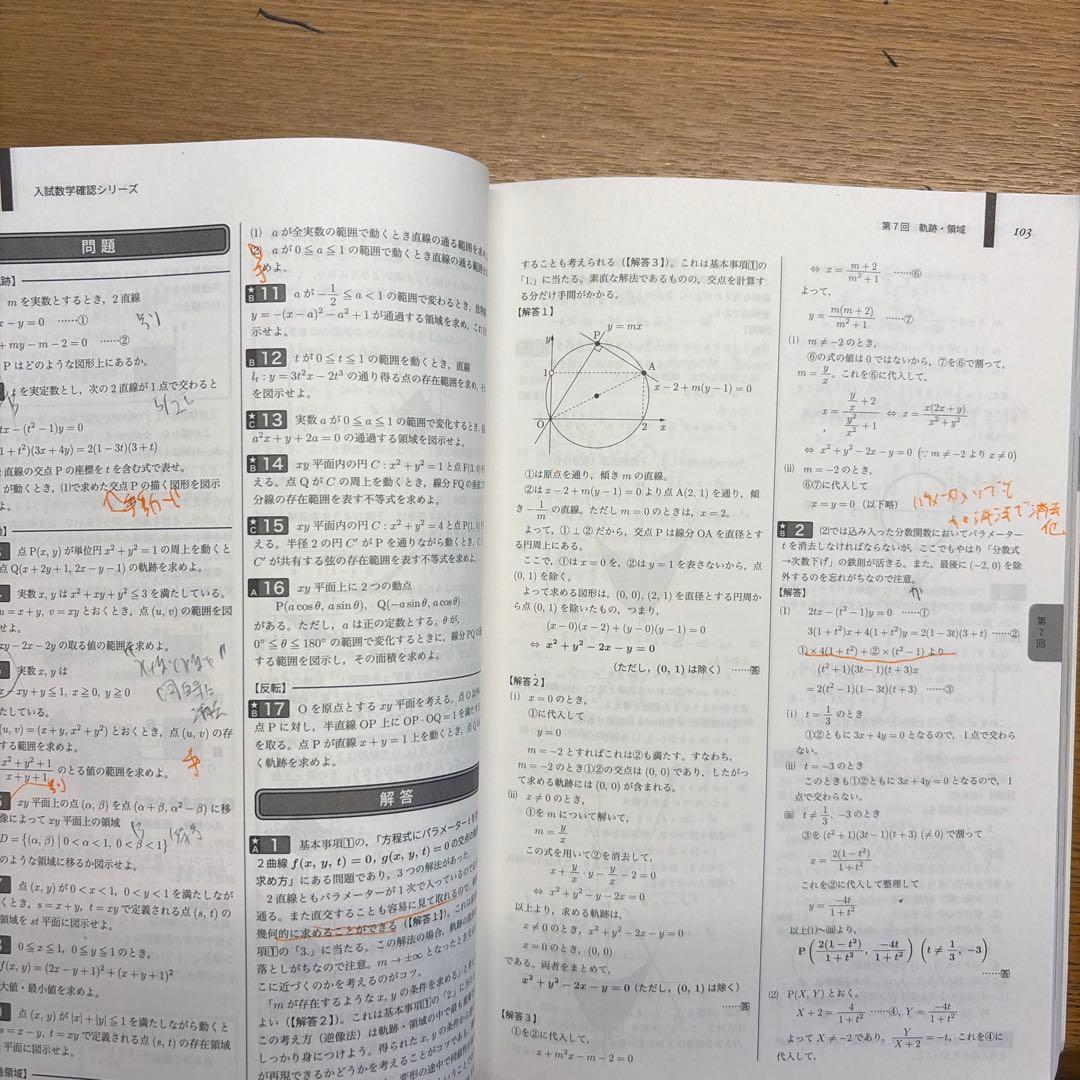 入試数学確認シリーズ
問題
m を実数とするとき，2 直線
x－y＝0 ……①
＋my－m－2＝0 ……②
P はどのような図形上にあるか。
t を実定数とし，次の 2 直線が 1 点で交わると
tx－(t²－1)y＝0
1＋t²)(3x＋4y)＝2(1－3t)(3＋t)
直線の交点 P の座標を t を含む式で表せ。
が動くとき，(1)で求めた交点 P の描く図形を図示
点 P(x, y) が単位円 x²＋y²＝1 の周上を動くと
点 Q(x＋2y＋1, 2x－y－1) の軌跡を求めよ。
実数 x, y は x²＋xy＋y²≦3 を満たしている。
u＝x＋y，v＝xy とおくとき，点 (u, v) の範囲を図
xy－2x－2y の取る値の範囲を求めよ。
実数 x, y は
xy＋y≦1，x≧0，y≧0
たしている。
(u, v)＝(x＋y, x²＋y²) とおくとき，点 (u, v) の存
する範囲を求めよ。
x²＋y²＋1/x＋y＋1 のとる値の範囲を求めよ。
別
手
xy 平面上の点 (α, β) を点 (α＋β, α²－β) に移
像によって xy 平面上の領域
D＝{(α, β)｜0＜α＜1，0＜β＜1}
のような領域に移るか図示せよ。
点 (x, y) が 0＜x＜1，0＜y＜1 を満たしなが
くとき，s＝x＋y，t＝xy で定義される点 (s, t) の
領域を st 平面に図示せよ。
0≦x≦1，0≦y≦1 のとき，
f(x, y)＝(2x－y＋1)²＋(x＋y＋1)²
大値・最小値を求めよ。
点 (x, y) が |x|＋|y|≦1 を満たしながら動くと
s＝x－y，t＝xy で定義される点 (s, t) の存在領域
平面に図示せよ。
(1) a が全実数の範囲で動くとき直線の通る範囲を求め
(2) a が 0≦a≦1 の範囲で動くとき直線の通る範囲を
めよ。
★B 11 a が －1/2≦a＜1 の範囲で変わるとき，放物
y＝－(x－a)²－a²＋1 が通過する領域を求め，これを
示せよ。
B 12 t が 0≦t≦1 の範囲を動くとき，直線
lt : y＝3t²x－2t³ の通り得る点の存在範囲を求め，そ
を図示せよ。
★C 13 実数 a が 0≦a≦1 の範囲で変化するとき，
a²x＋y＋2a＝0 の通過する領域を図示せよ。
★B 14 xy 平面内の円 C : x²＋y²＝1 と点 F(3, 0)
える。点 Q が C の周上を動くとき，線分 FQ の垂
分線の存在範囲を表す不等式を求めよ。
★C 15 xy 平面内の円 C : x²＋y²＝4 と点 P(1, 0)
える。半径 2 の円 C′ が P を通りながら動くとき，C
C′ が共有する弦の存在範囲を表す不等式を求めよ。
A 16 xy 平面上に 2 つの動点
P(a cosθ, a sinθ)，Q(－a sinθ, a cosθ)
がある。ただし，a は正の定数とする。θ が，
0°≦θ≦180° の範囲で変化するときに，線分 PQ の通
る範囲を図示し，その面積を求めよ。
【反転】
★B 17 O を原点とする xy 平面を考える。点 O と異
点 P に対し，半直線 OP 上に OP・OQ＝1 を満たす
を取る。点 P が直線 x＋y＝1 上を動くとき，点 Q
く軌跡を求めよ。
解答
★A 1 基本事項①の，「方程式にパラメーター t を
2 曲線 f(x, y, t)＝0，g(x, y, t)＝0 の交点の
求め方」にある問題であり，3 つの解法があった。
2 直線ともパラメーターが 1 次で入っているので
通る。また直交することも容易に見て取れるので，
幾何的に求めることができる（【解答 1】）。これは基
項①の「3.」に当たる。この解法の場合，軌跡の
落としがちなので注意。m→±∞ となったとき
こに近づくのかを考えるのがコツ。
「m が存在するような x, y の条件を求める」と
よい（【解答 2】）。これは基本事項①の「2.」に当た
この考え方（逆像法）は軌跡・領域の中で最も重要
しっかり身につけよう。得られた x, y の条件から
が再現できるかどうかを考えることがコツ
第 7 回 軌跡・領域 103
することも考えられる（【解答 3】）。これは基本事項①の
「1.」に当たる。素直な解法であるものの，交点を計算す
る分だけ手間がかかる。
【解答 1】
y
P
y＝mx
1
A
x－2＋m(y－1)＝0
O
2
x
①は原点を通り，傾き m の直線。
②は x－2＋m(y－1)＝0 より点 A(2, 1) を通り，傾
き －1/m の直線。ただし m＝0 のときは，x＝2。
よって，①⊥② だから，交点 P は線分 OA を直径とす
る円周上にある。
ここで，①は x＝0 を，②は y＝1 を表さないから，点
(0, 1) を除く。
よって求める図形は，(0, 0)，(2, 1) を直径とする円周か
ら点 (0, 1) を除いたもの，つまり，
(x－0)(x－2)＋(y－0)(y－1)＝0
⇔ x²＋y²－2x－y＝0
（ただし，(0, 1) は除く）……答
【解答 2】
(i) x＝0 のとき，
①に代入して
y＝0
m＝－2 とすればこれは②も満たす。すなわち，
m＝－2 のとき①②の交点は (0, 0) であり，したがっ
て求める軌跡には (0, 0) が含まれる。
(ii) x≠0 のとき，
①を m について解いて，
m＝y/x
この式を用いて②を消去して，
x＋y/x・y－y/x－2＝0
⇔ x²＋y²－y－2x＝0
以上より，求める軌跡は，
x≠0 のとき，x²＋y²－2x－y＝0
x＝0 のとき，(0, 0)
である。両者をまとめて，
x²＋y²－2x－y＝0（ただし，(0, 1) は除く）
……答
【解答 3】
①を②に代入して，
x＋m²x－m－2＝0
⇔ x＝m＋2/m²＋1 ……⑥
よって，
y＝m(m＋2)/m²＋1 ……⑦
(i) m≠－2 のとき，
⑥の式の値は 0 ではないから，⑦を⑥で割って，
m＝y/x。これを⑥に代入して，
x＝(y/x＋2)/(y²/x²＋1) ⇔ x＝x(2x＋y)/x²＋y²
⇔ x²＋y²－2x－y＝0（∵ m≠－2 より x≠0）
(ii) m＝－2 のとき，
⑥⑦に代入して
x＝y＝0（以下略）
★B 2 (2)では込み入った分数関数においてパラメーター
t を消去しなければならないが，ここでもやはり「分数式
→次数下げ」の鉄則が活きる。また，最後に (－2, 0) を除
外するのを忘れがちなので注意。
【解答】
(1) 2tx－(t²－1)y＝0 ……①
3(1＋t²)x＋4(1＋t²)y＝2(1－3t)(3＋t) ……②
①×4(1＋t²)＋②×(t²－1) より
(t²＋1)(3t－1)(t＋3)x
＝2(t²－1)(1－3t)(t＋3) ……③
(i) t＝1/3 のとき
①②ともに 3x＋4y＝0 となるので，1 点で交わら
ない。
(ii) t＝－3 のとき
このときも①②ともに 3x＋4y＝0 となるので，1
点で交わらない。
(iii) t≠1/3，－3 のとき
③を (t²＋1)(3t－1)(t＋3)（≠0）で割って
x＝2(1－t²)/1＋t²
これを②に代入して整理して
y＝－4t/1＋t²
以上(i)～(iii)より，
P(2(1－t²)/1＋t², －4t/1＋t²) (t≠1/3, －3)
……答
(2) P(X, Y) とおく。
X＋2＝4/1＋t² ……④，Y＝－4t/1＋t²
よって X≠－2 であり，Y/X＋2＝－t。これを④に
代入して，
第7回